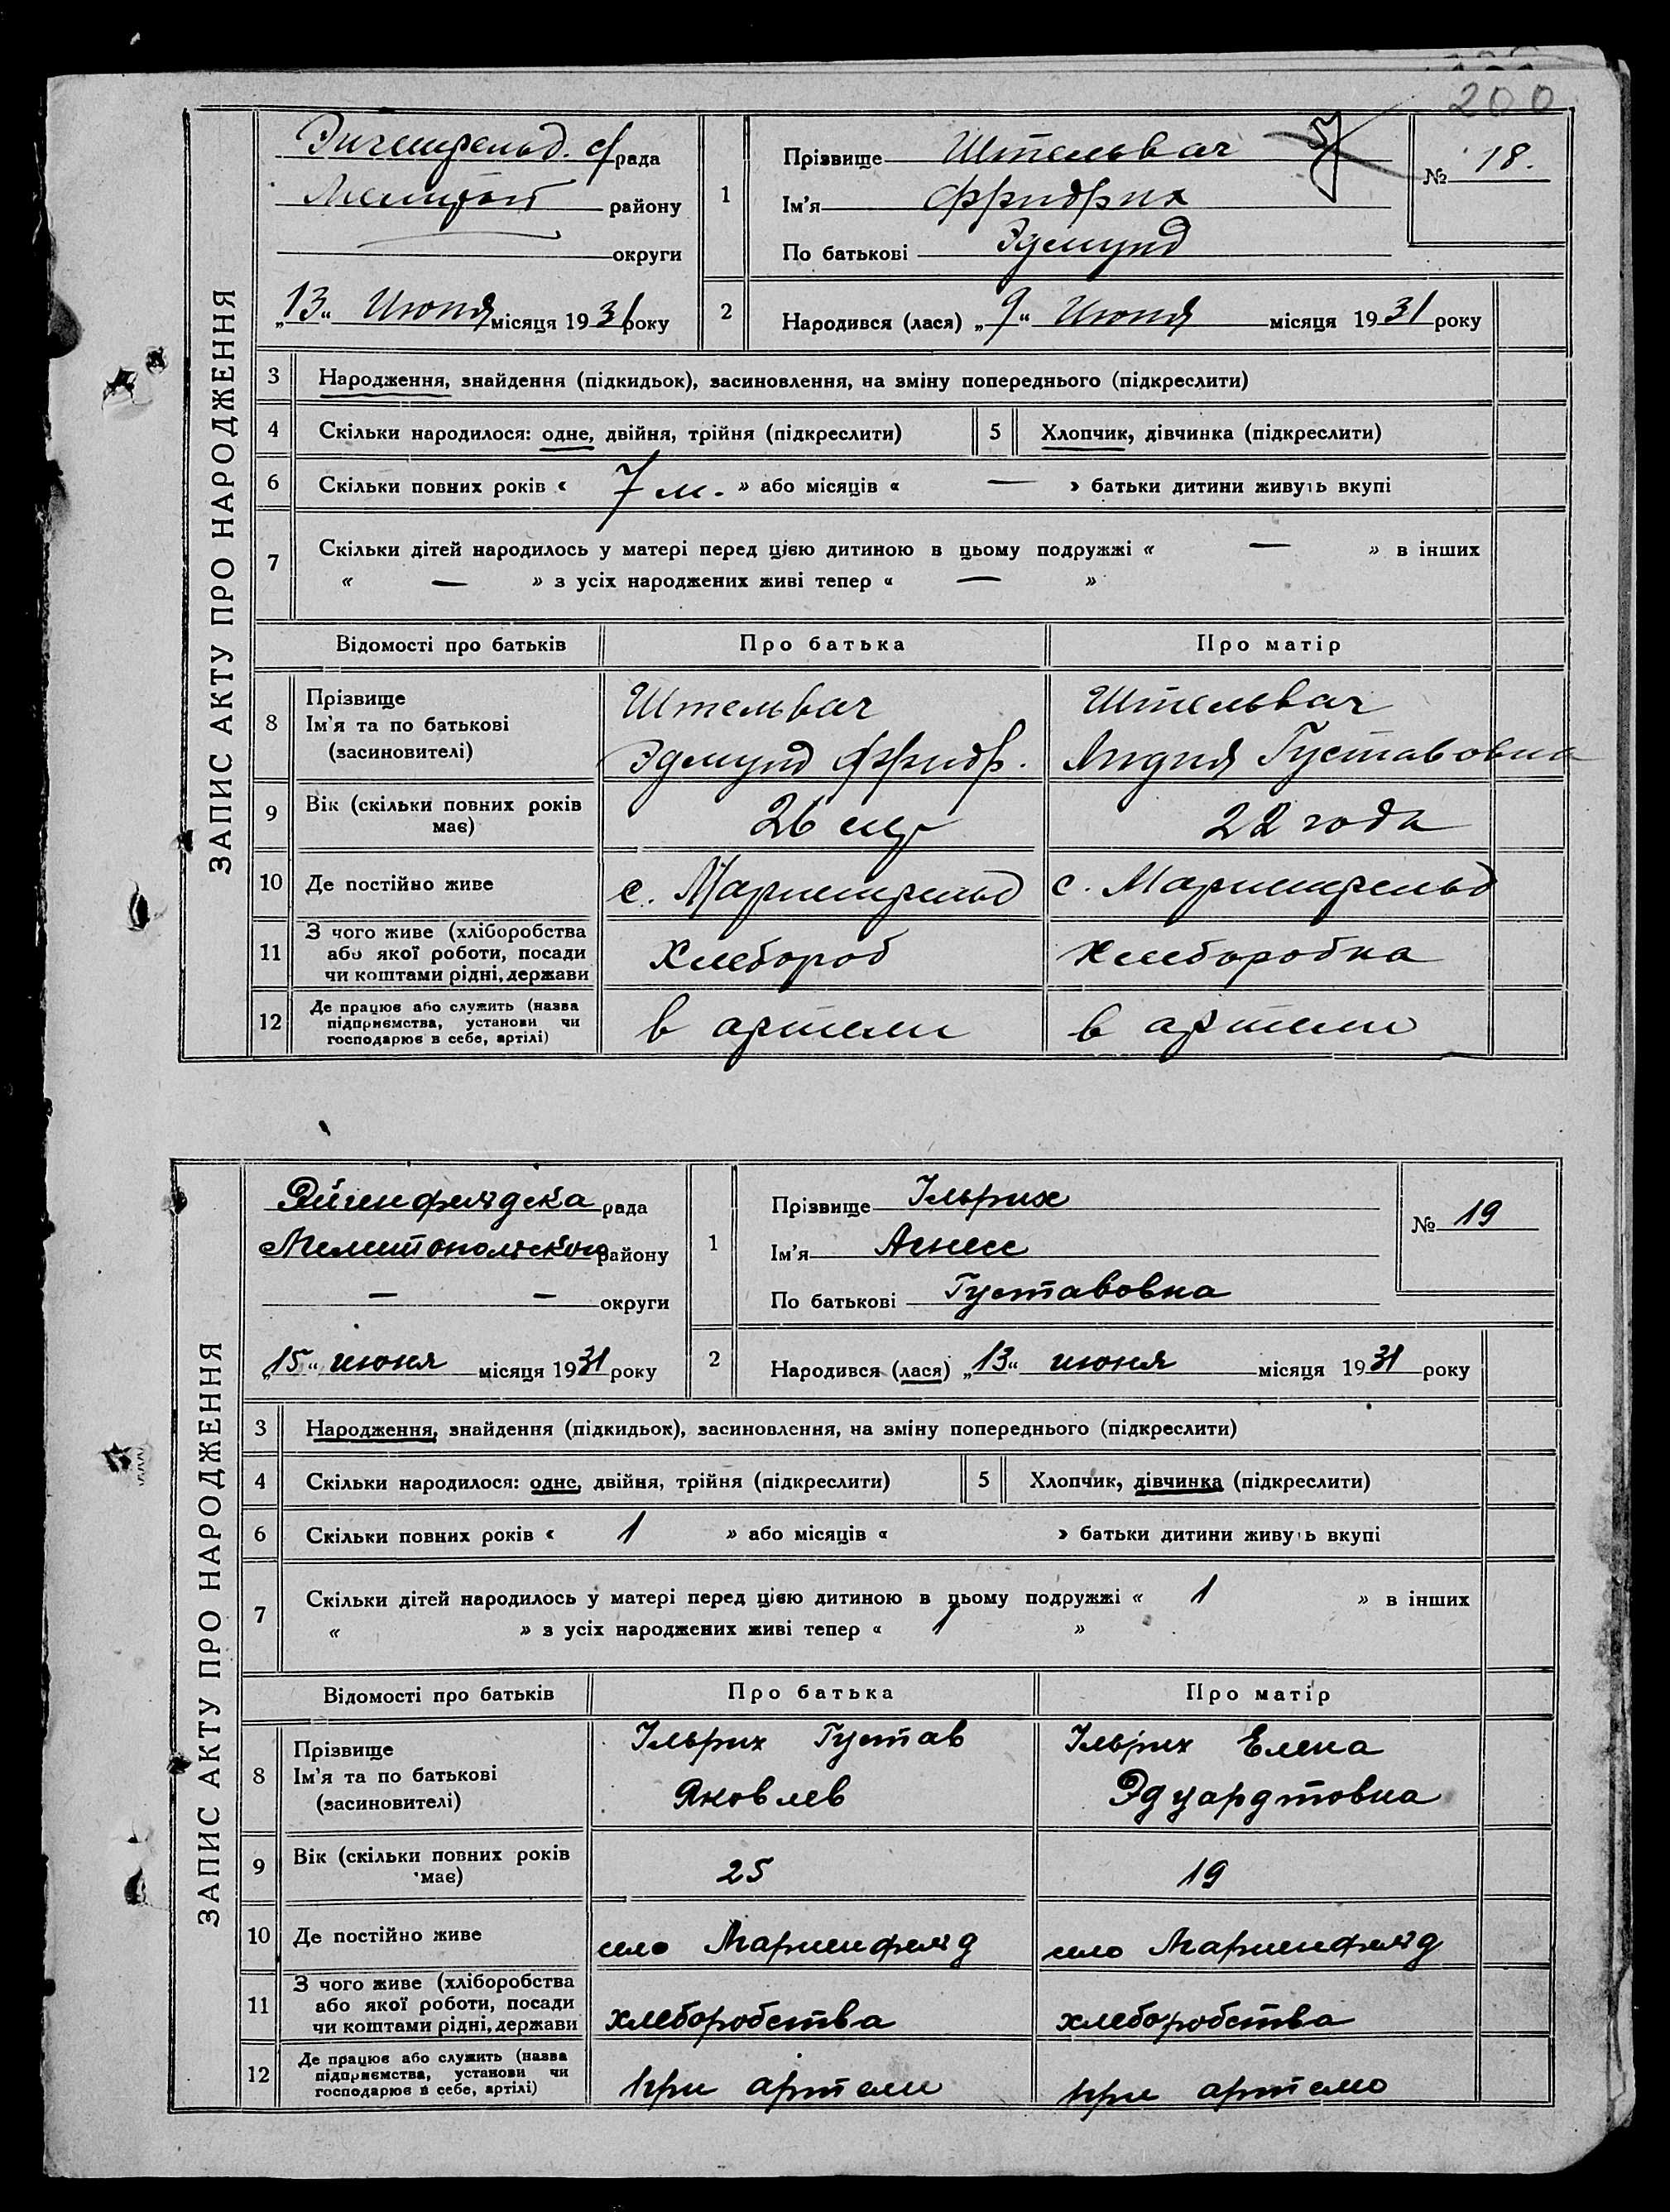 200
ЗАПИС АКТУ ПРО НАРОДЖЕННЯ
с/рада
району
округи
„13“ Июня місяця 1931 року
1
Прізвище Штельвах
Ім'я Фридрих
По батькові Эдмунд
№ 18.
2
Народився (лася) „9“ Июня місяця 1931 року
3 Народження, знайдення (підкидьок), засиновлення, на зміну попереднього (підкреслити)
4 Скільки народилося: одне, двійня, трійня (підкреслити) 5 Хлопчик, дівчинка (підкреслити)
6 Скільки повних років « 7 м. » або місяців « — » батьки дитини живуть вкупі
7 Скільки дітей народилось у матері перед цією дитиною в цьому подружжі « — » в інших
« — » з усіх народжених живі тепер « — »
Відомості про батьків Про батька Про матір
8 Прізвище Ім'я та по батькові (засиновителі)
Штельвах Эдмунд Фридр.
Штельвах Лидия Густавовна
9 Вік (скільки повних років має) 26 22 года
10 Де постійно живе с. Мариенфельд с. Мариенфельд
11 З чого живе (хліборобства або якої роботи, посади чи коштами рідні, держави Хлебороб Хлеборобка
12 Де працює або служить (назва підприємства, установи чи господарює в себе, артілі) в артели в артели
ЗАПИС АКТУ ПРО НАРОДЖЕННЯ
Эйгенфелдска рада
Мелитопольского району
— — округи
„15“ июня місяця 1931 року
1
Прізвище Ільрих
Ім'я Агнесс
По батькові Густавовна
№ 19
2
Народився (лася) „13“ июня місяця 1931 року
3 Народження, знайдення (підкидьок), засиновлення, на зміну попереднього (підкреслити)
4 Скільки народилося: одне, двійня, трійня (підкреслити) 5 Хлопчик, дівчинка (підкреслити)
6 Скільки повних років « 1 » або місяців « » батьки дитини живуть вкупі
7 Скільки дітей народилось у матері перед цією дитиною в цьому подружжі « 1 » в інших
« » з усіх народжених живі тепер « 1 »
Відомості про батьків Про батька Про матір
8 Прізвище Ім'я та по батькові (засиновителі)
Ільрих Густав Яковлев
Ільрих Елена Эдуардтовна
9 Вік (скільки повних років має) 25 19
10 Де постійно живе село Мариенфелд село Мариенфелд
11 З чого живе (хліборобства або якої роботи, посади чи коштами рідні, держави хлеборобства хлеборобства
12 Де працює або служить (назва підприємства, установи чи господарює в себе, артілі) при артели при артелю